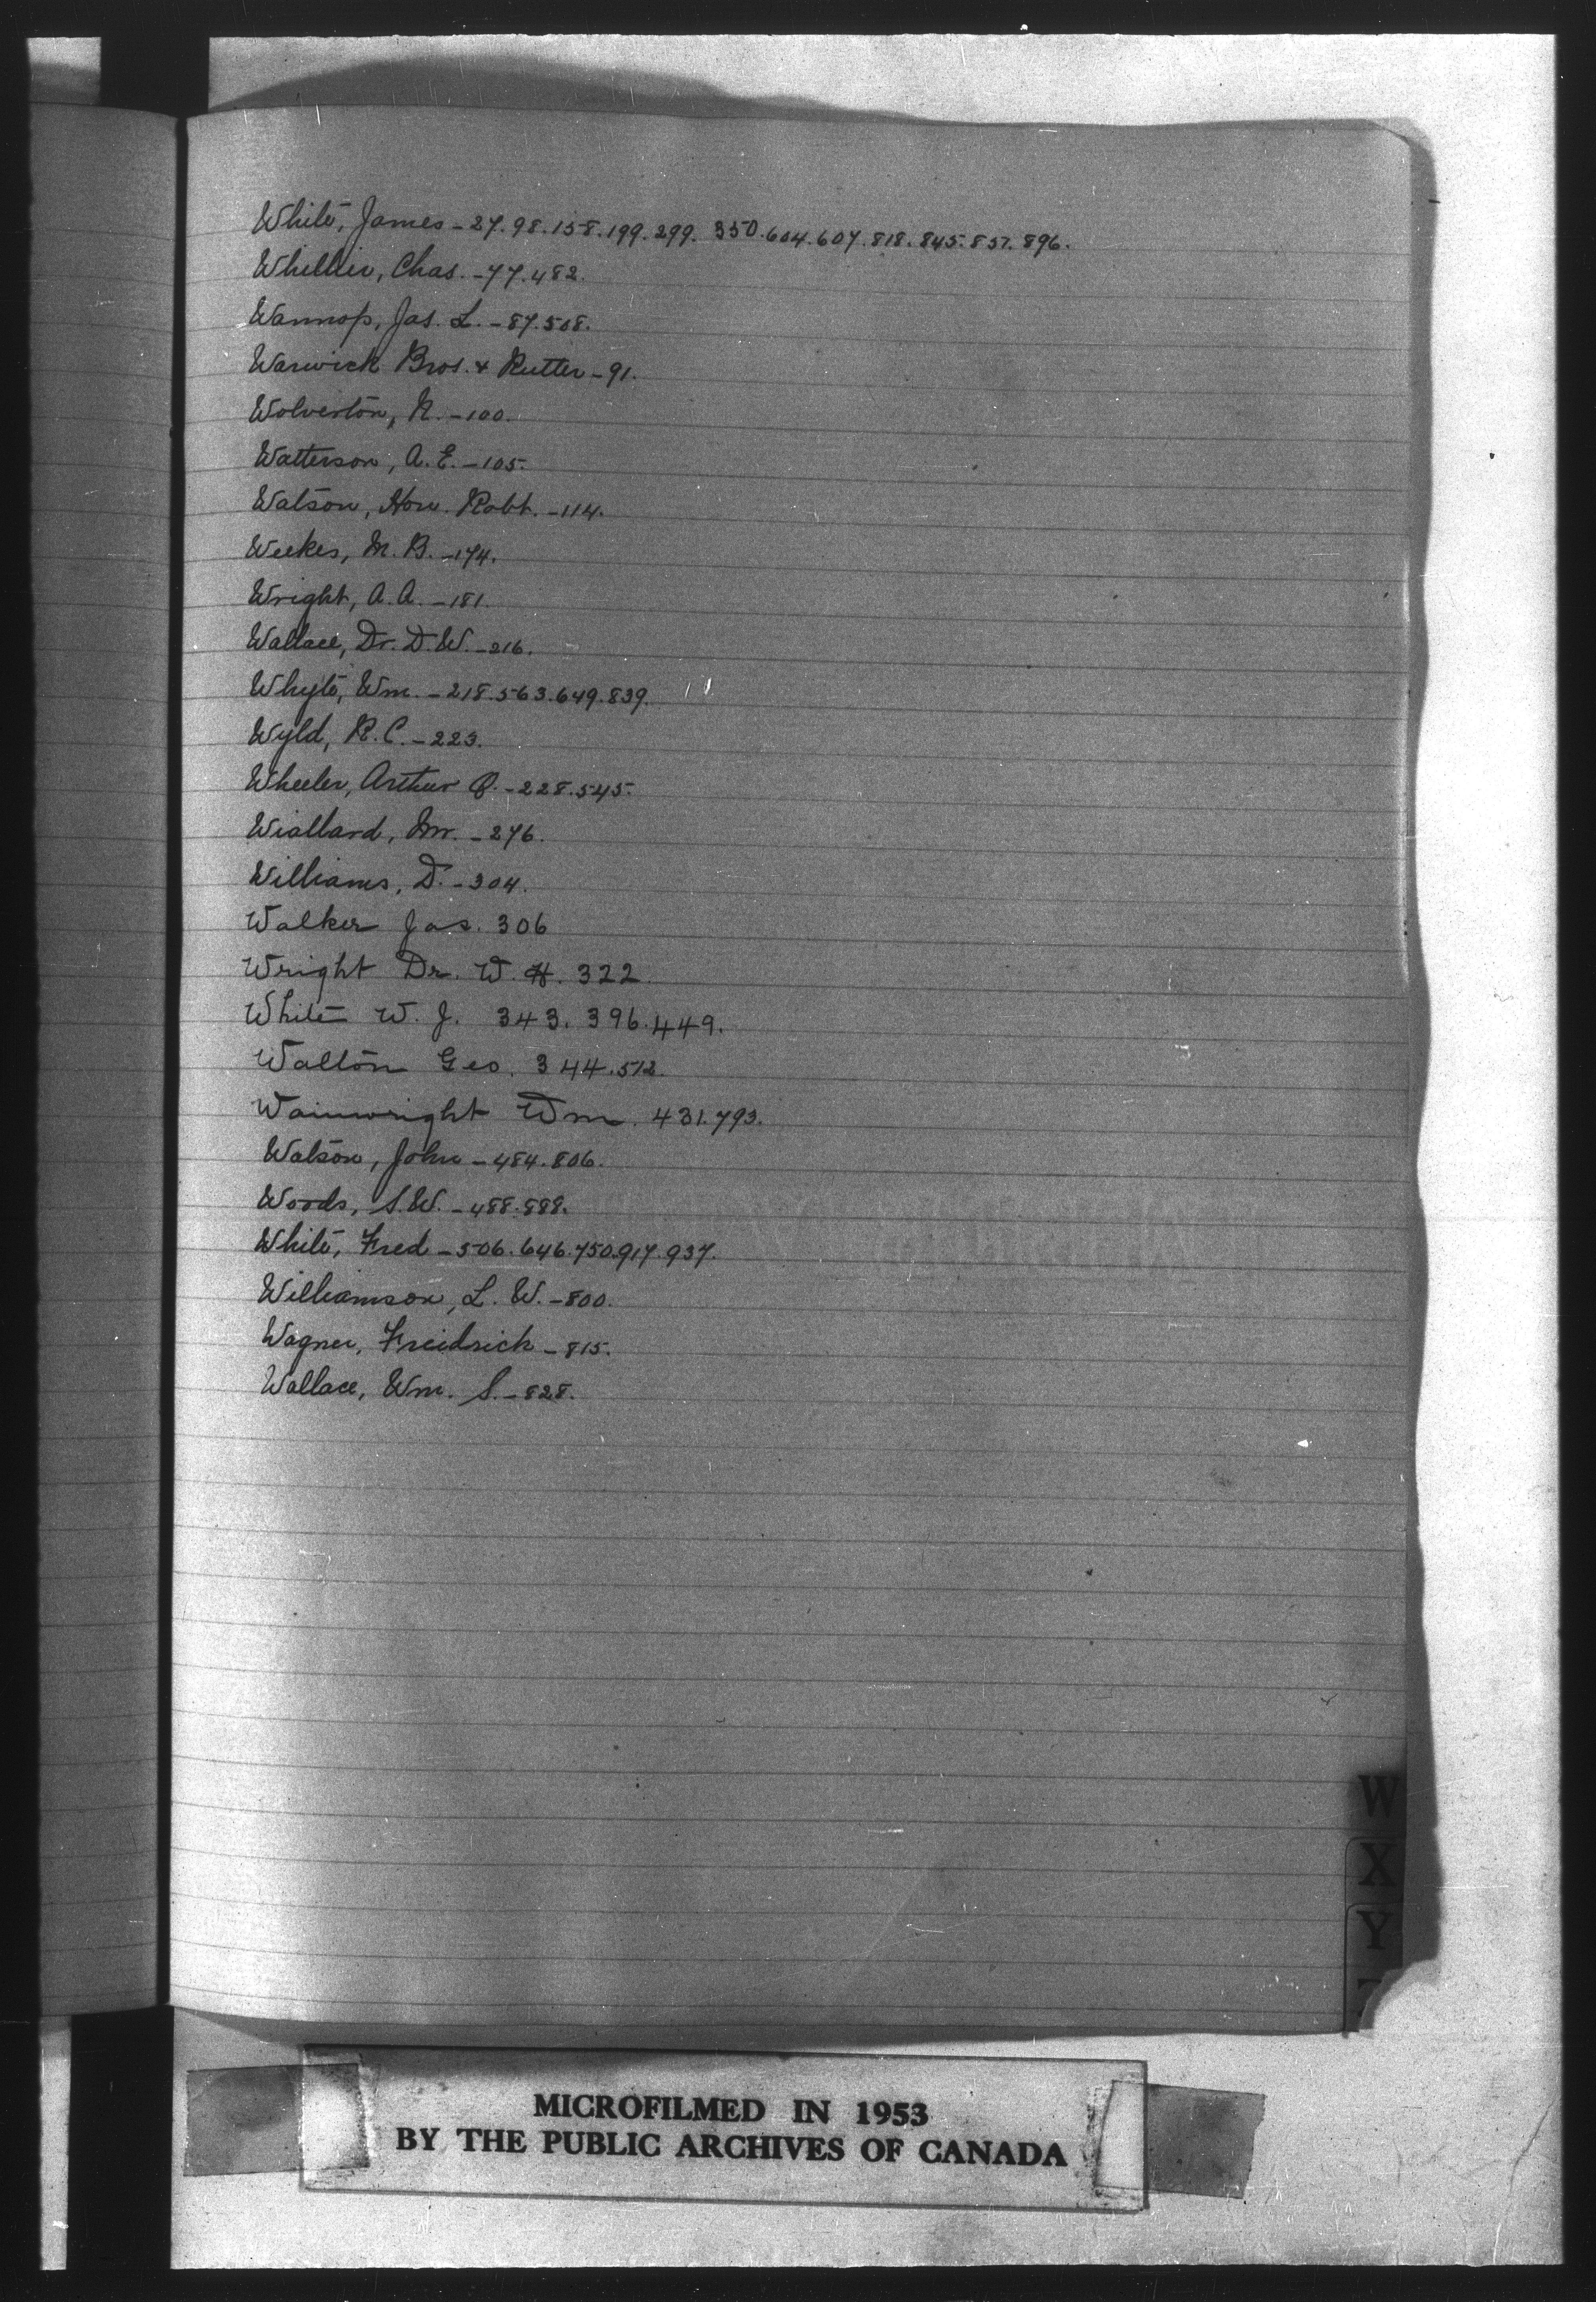 White, James - 27. 98. 158. 199. 299. 350. 604. 607. 818. 845. 857. 896.
Whellier, Chas. - 77. 482.
Wannop, Jas. L. - 87. 508.
Warwick Bros. & Rutter - 91.
Wolverton, N. - 100.
Watterson, A. E. - 105.
Watson, Hon. Robt. - 114.
Weekes, M. B. - 174.
Wright, A. A. - 181.
Wallace, Dr. D. W. - 216.
Whyte, Wm. - 218. 563. 649. 839.
Wyld, R. C. - 223.
Wheeler, Arthur O. - 228. 545.
Wiallard, Mr. - 276.
Williams, D. - 304.
Walker Jas. 306
Wright Dr. W. H. 322.
White W. J. 343. 396. 449.
Walton Geo. 344. 512.
Wainwright Wm. 431. 793.
Watson, John - 484. 806.
Woods, S. W. - 488. 888.
White, Fred - 506. 646. 750. 917. 937.
Williamson, L. W. - 800.
Wagner, Freidrich - 815.
Wallace, Wm. S. - 828.
W
X
Y
MICROFILMED IN 1953
BY THE PUBLIC ARCHIVES OF CANADA